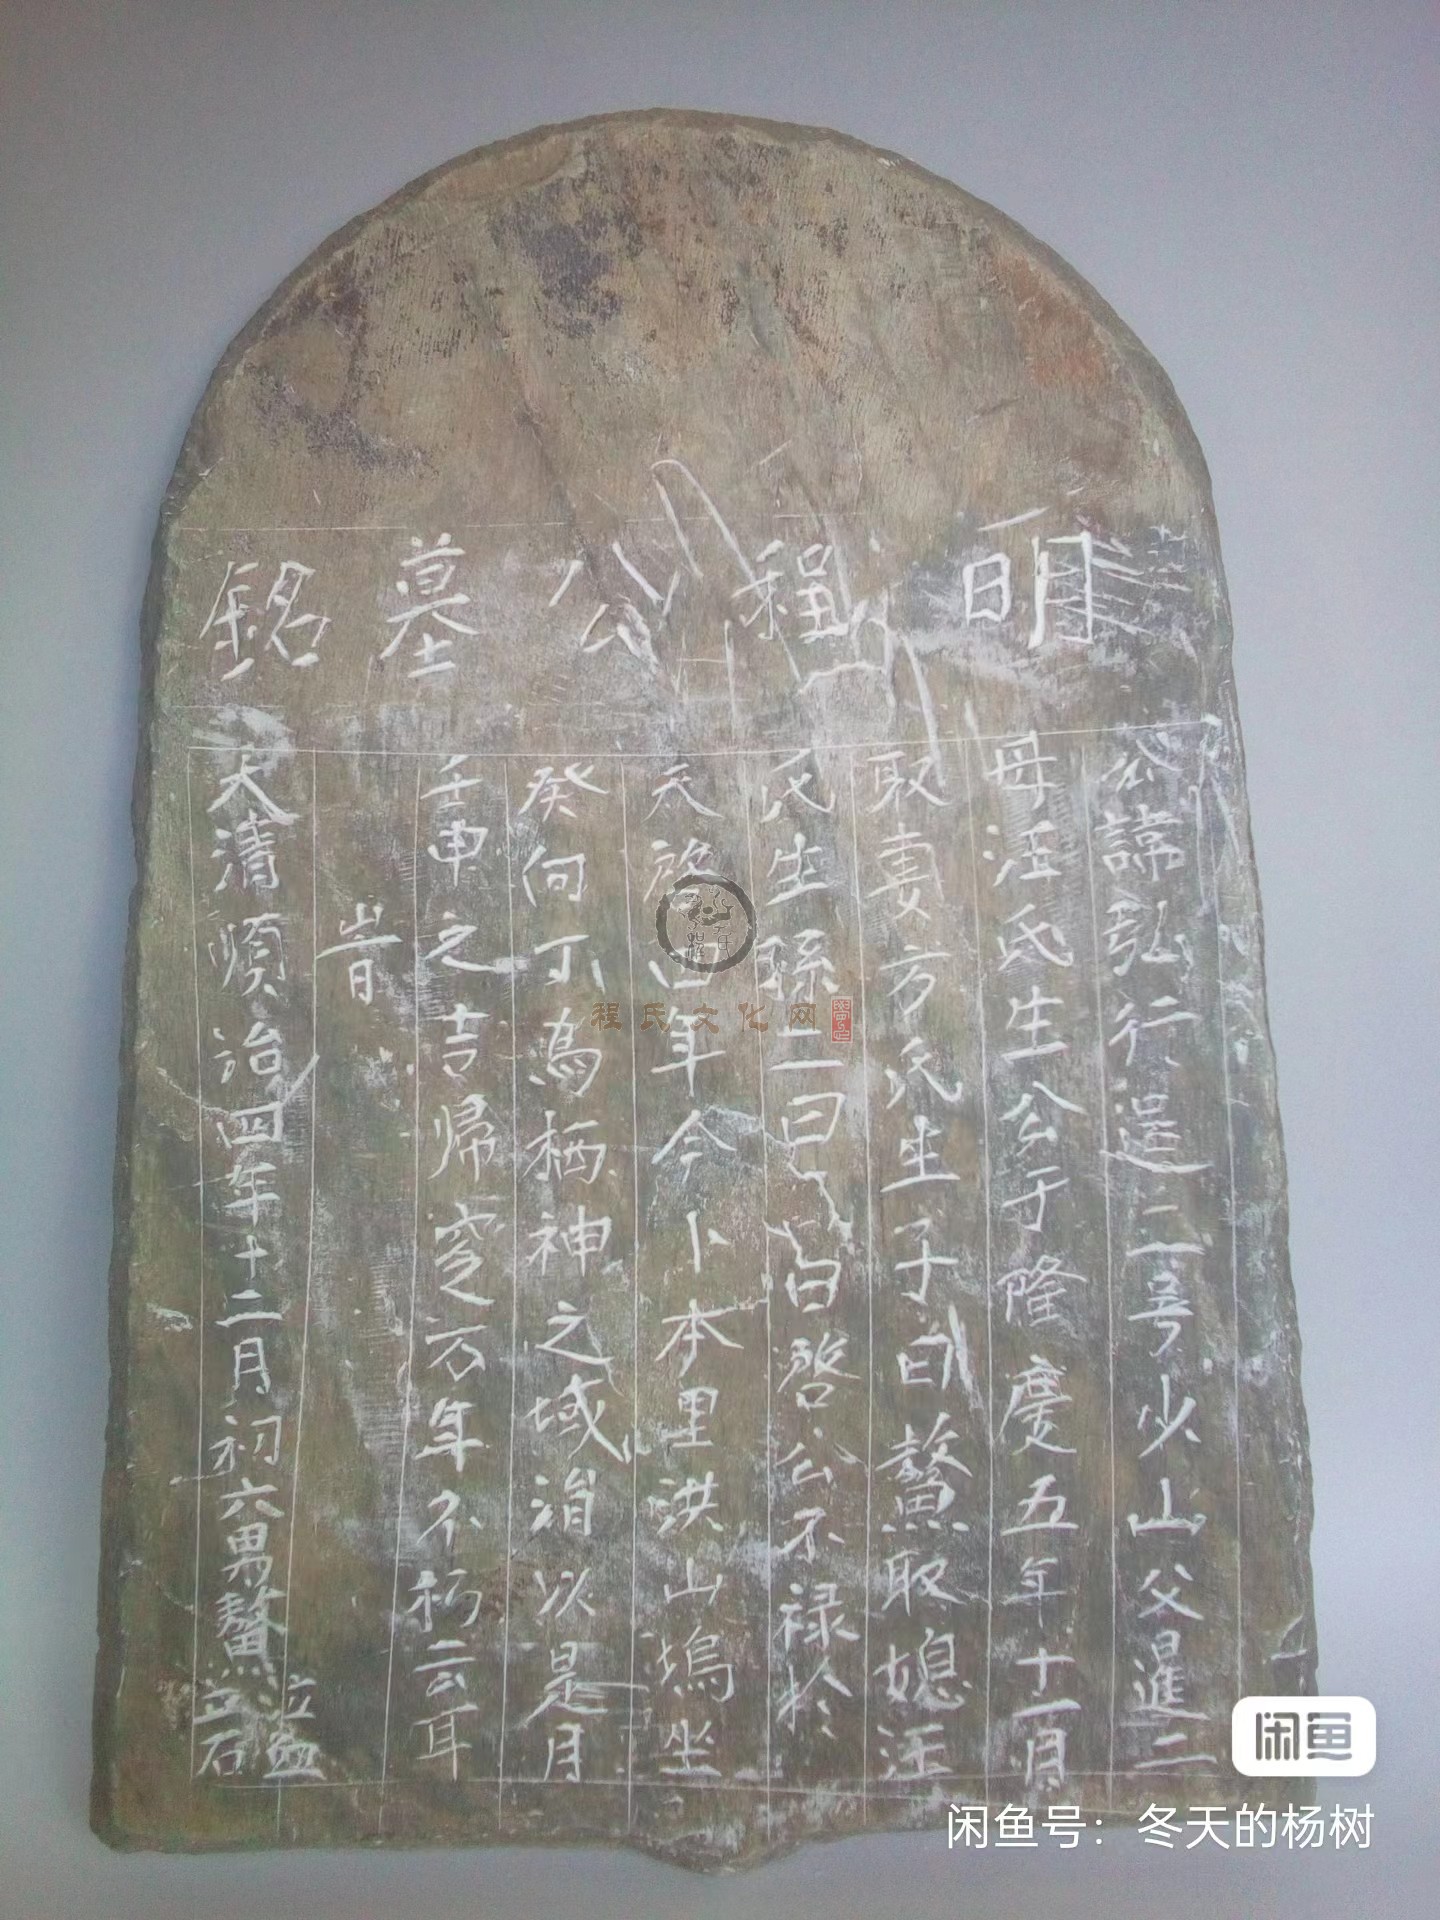 明程公墓銘
公諱弘行遑二号少山父暹二
母汪氏生公于隆慶五年十一月
取妻方氏生子曰鰲取媳汪
氏生孫二曰曰啓公不禄於
天啓四年今卜本里洪山塢坐
癸向丁為栖神之域涓以是月
壬申之吉歸窆万年不朽云耳
旹
大清順治四年十二月初六男鰲泣血立石
程氏文化网
闲鱼
闲鱼号：冬天的杨树